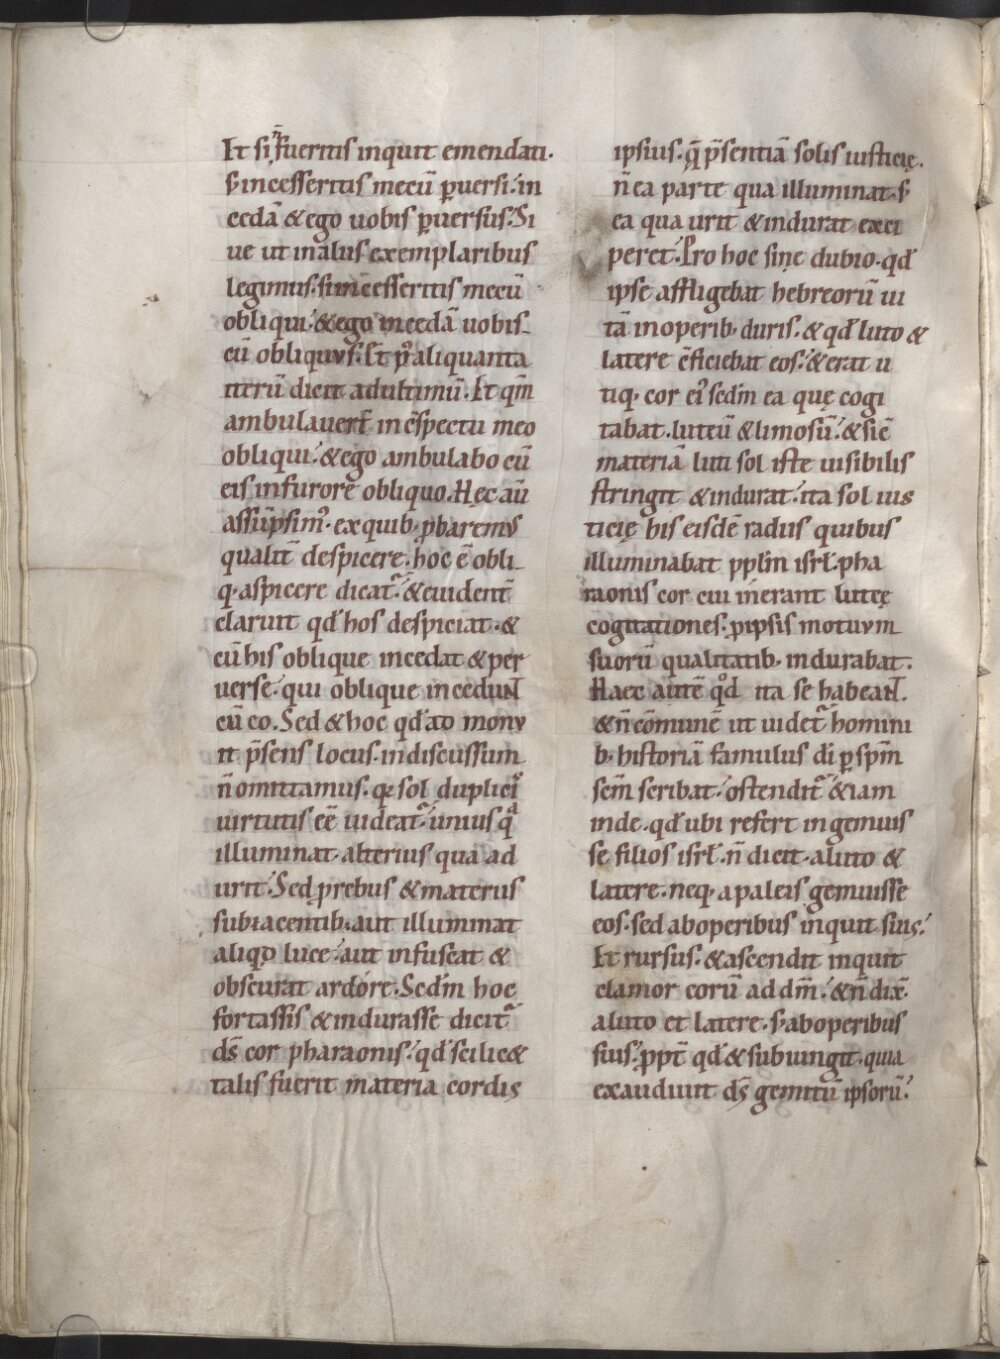 Et si n̄ fueritis inquit emendati.
s; incesseritis mecū p̱uersi. in
cedā & ego uobis p̱uersus. Si
ue ut in aliis exemplaribus
legimus. si incesseritis mecū
obliqui. & ego incedā uobis
cū obliquus. Et p᷒ aliquanta
iterū dicit ad ultimū. Et qm̄
ambulauer̄t in c̄spectu meo
obliqui. & ego ambulabo cū
eis in furore obliquo. Hęc aū
assūpsim᷒. ex quib; ꝓbaremus
qualit̄ despicere. hoc ē obli
q; aspicere dicat᷑. & euident̄
claruit qđ hos despiciat. &
cū his oblique incedat & per
uerse. qui oblique incedunt
cū eo. Sed & hoc qđ ad monu
it p̄sens locus. indiscussum
n̄ omittamus. q; sol duplici᷒
uirtutis eē uideat᷑. unius qͣ
illuminat. alterius qua ad
urit. Sed ꝓ rebus & materiis
subiacentib; aut illuminat
aliqͦd luce. aut infuscat &
obscurat ardore. Sedm̄ hoc
fortassis & indurasse dicit᷑
ds̄ cor pharaonis. qđ scilic&
talis fuerit materia cordis
ipsius. q̄ p̄sentiā solis iusticię.
n̄ ea parte qua illuminat. s;
ea qua urit & indurat exci
peret. Pro hoc sine dubio. qđ
ipse affligebat hebreorū ui
tā in operib; duris. & qđ luto &
latere c̄ficiebat eos. & erat u
tiq; cor ei᷒ sedm̄ ea quę cogi
tabat. luteū & limosū. & sic̄
materiā luti sol iste uisibilis
stringit & indurat. ita sol ius
ticię his eisdē radiis quibus
illuminabat pplm̄ isrł. pha
raonis cor cui inerant luteę
cogitationes. ꝓ ipsis motuum
suorū qualitatib; indurabat.
Haec autē qͦd ita se habeant.
& n̄ cōmunē ut uidet᷑ homini
b; historiā famulus dī p̱ spm̄
scm̄ scribat. ostendit᷑ & iam
inde. qđ ubi refert ingemuis
se filios isrł. n̄ dicit. a luto &
latere. neq; a paleis gemuisse
eos. sed ab operibus inquit suis.
Et rursus. & ascendit inquit
clamor eorū ad dm̄. & n̄ dix̄.
a luto et latere. s; ab operibus
suis. ꝓpt̄ qđ & subiungit. quia
exaudiuit ds̄ gemitū ipsorū.